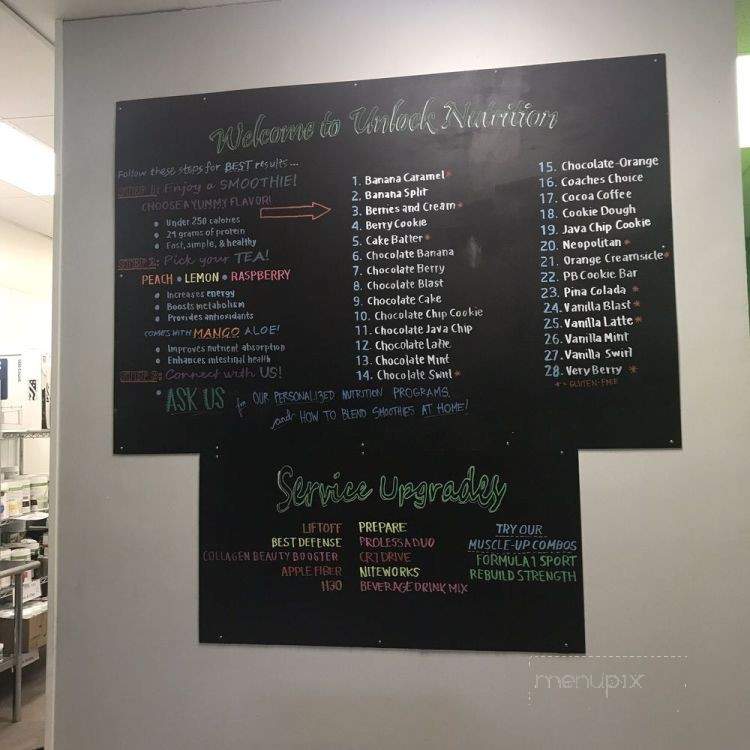 Welcome to Unlock Nutrition
Follow these steps for BEST results...
STEP 1: Enjoy a SMOOTHIE!
CHOOSE A YUMMY FLAVOR!
• Under 250 calories
• 24 grams of protein
• Fast, simple, & healthy
STEP 2: Pick your TEA!
PEACH • LEMON • RASPBERRY
• Increases energy
• Boosts metabolism
• Provides antioxidants
COMES WITH MANGO ALOE!
• Improves nutrient absorption
• Enhances intestinal health
STEP 3: Connect with US!
• ASK US for OUR PERSONALIZED NUTRITION PROGRAMS
and HOW TO BLEND SMOOTHIES AT HOME!
1. Banana Caramel *
2. Banana Split
3. Berries and Cream *
4. Berry Cookie
5. Cake Batter *
6. Chocolate Banana
7. Chocolate Berry
8. Chocolate Blast
9. Chocolate Cake
10. Chocolate Chip Cookie
11. Chocolate Java Chip
12. Chocolate Latte
13. Chocolate Mint
14. Chocolate Swirl *
15. Chocolate-Orange
16. Coaches Choice
17. Cocoa Coffee
18. Cookie Dough
19. Java Chip Cookie
20. Neopolitan *
21. Orange Creamsicle *
22. PB Cookie Bar
23. Pina Colada *
24. Vanilla Blast *
25. Vanilla Latte *
26. Vanilla Mint
27. Vanilla Swirl
28. Very Berry *
* = GLUTEN-FREE
Service Upgrades
LIFTOFF
BEST DEFENSE
COLLAGEN BEAUTY BOOSTER
APPLE FIBER
H30
PREPARE
PROLESSA DUO
CR7 DRIVE
NITEWORKS
BEVERAGE DRINK MIX
TRY OUR
MUSCLE-UP COMBOS
FORMULA 1 SPORT
REBUILD STRENGTH
menupix